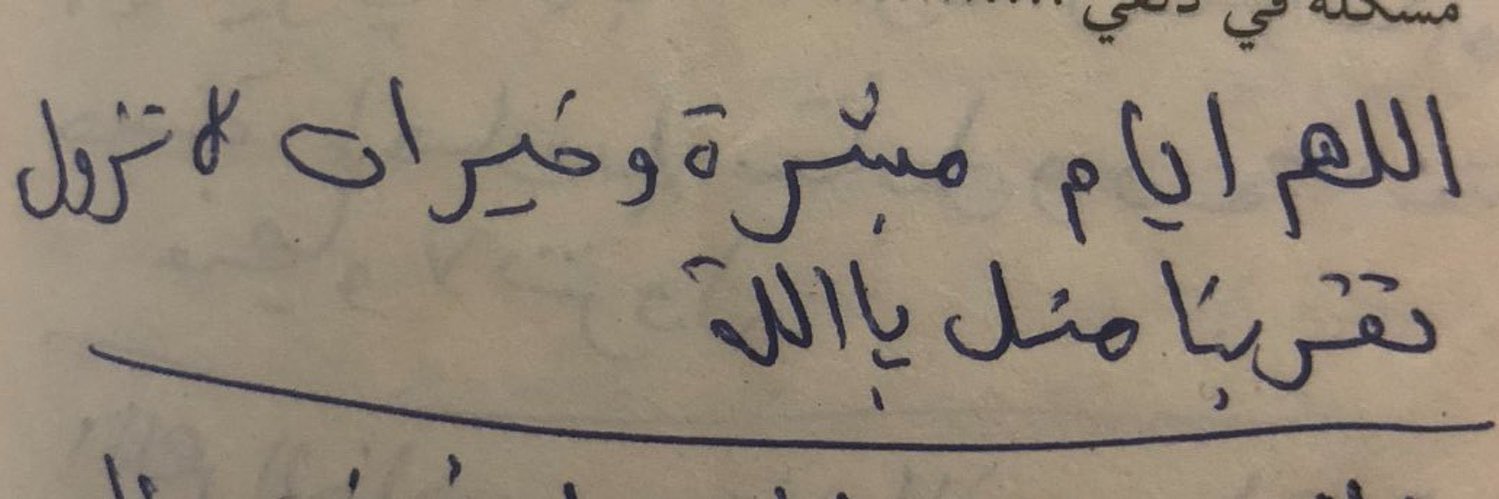 مشكلة في
اللهم ايام مبشرة وخيرات لا تزول
تقربنا منك ياالله